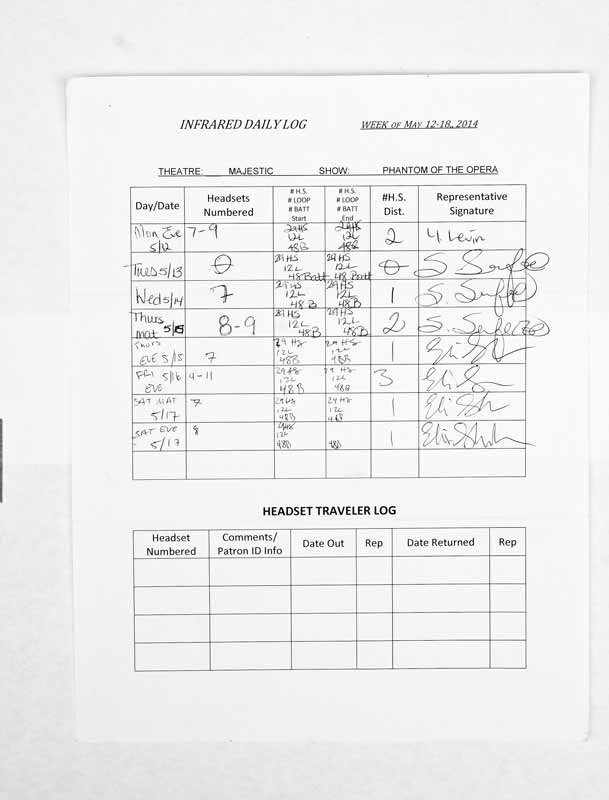 INFRARED DAILY LOG WEEK OF MAY 12-18,, 2014
THEATRE: MAJESTIC SHOW: PHANTOM OF THE OPERA
Day/Date Headsets Numbered # H.S. # LOOP # BATT Start # H.S. # LOOP # BATT End #H.S. Dist. Representative Signature
Mon Eve 5/12 7-9 29HS 12L 48B 29HS 12L 48B 2 Y. Levin
Tues 5/13 0 29 HS 12L 48 Batt 29 HS 12L 48 Batt 0 S.
Wed 5/14 7 29 HS 12L 48 B 29 HS 12L 48 B 1 S.
Thurs mat 5/15 8-9 29 HS 12L 48B 29 HS 12L 48B 2 S.
Thurs EVE 5/15 7 29 HS 12L 48B 29 HS 12L 48B 1 Eli
FRI 5/16 EVE 9-11 29 HS 12L 48B 29 HS 12L 48B 3 Eli
SAT MAT 5/17 7 29HS 12L 48B 29 HS 12L 48B 1 Eli
SAT EVE 5/17 8 29HS 12L 48B 48B 1 Eli
HEADSET TRAVELER LOG
Headset Numbered Comments/ Patron ID Info Date Out Rep Date Returned Rep